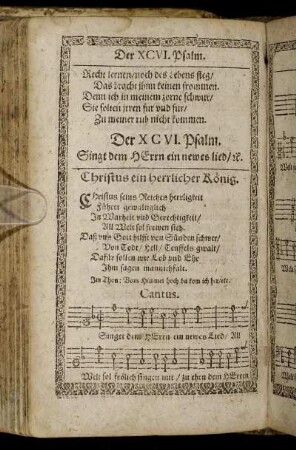 Der XCVI. Psalm.
Recht lernen/noch des Lebens steg/
Das bracht jhnn keinen frommen.
Denn ich in meinem zorne schwur/
Sie solten jrren fur vnd fur/
Zu meiner ruh nicht kommen.
Der XCVI. Psalm.
Singt dem HErrn ein newes lied/ꝛc.
Christus ein herrlicher König.
Christus seins Reiches herrligkeit
Führet gewaltiglich
In Warheit vnd Gerechtigkeit/
All Welt sol frewen sich.
Daß vns Gott hilfft von Sünden schwer/
Von Todt/ Hell/ Teuffels gwalt/
Dafür sollen wir Lob vnd Ehr
Ihm sagen mannichfalt.
Im Thon: Vom Himmel hoch da kom ich her/etc.
Cantus.
Singet dem HErrn ein newes Lied/ All
Welt sol frölich singen mit / zu ehrn dem HErren